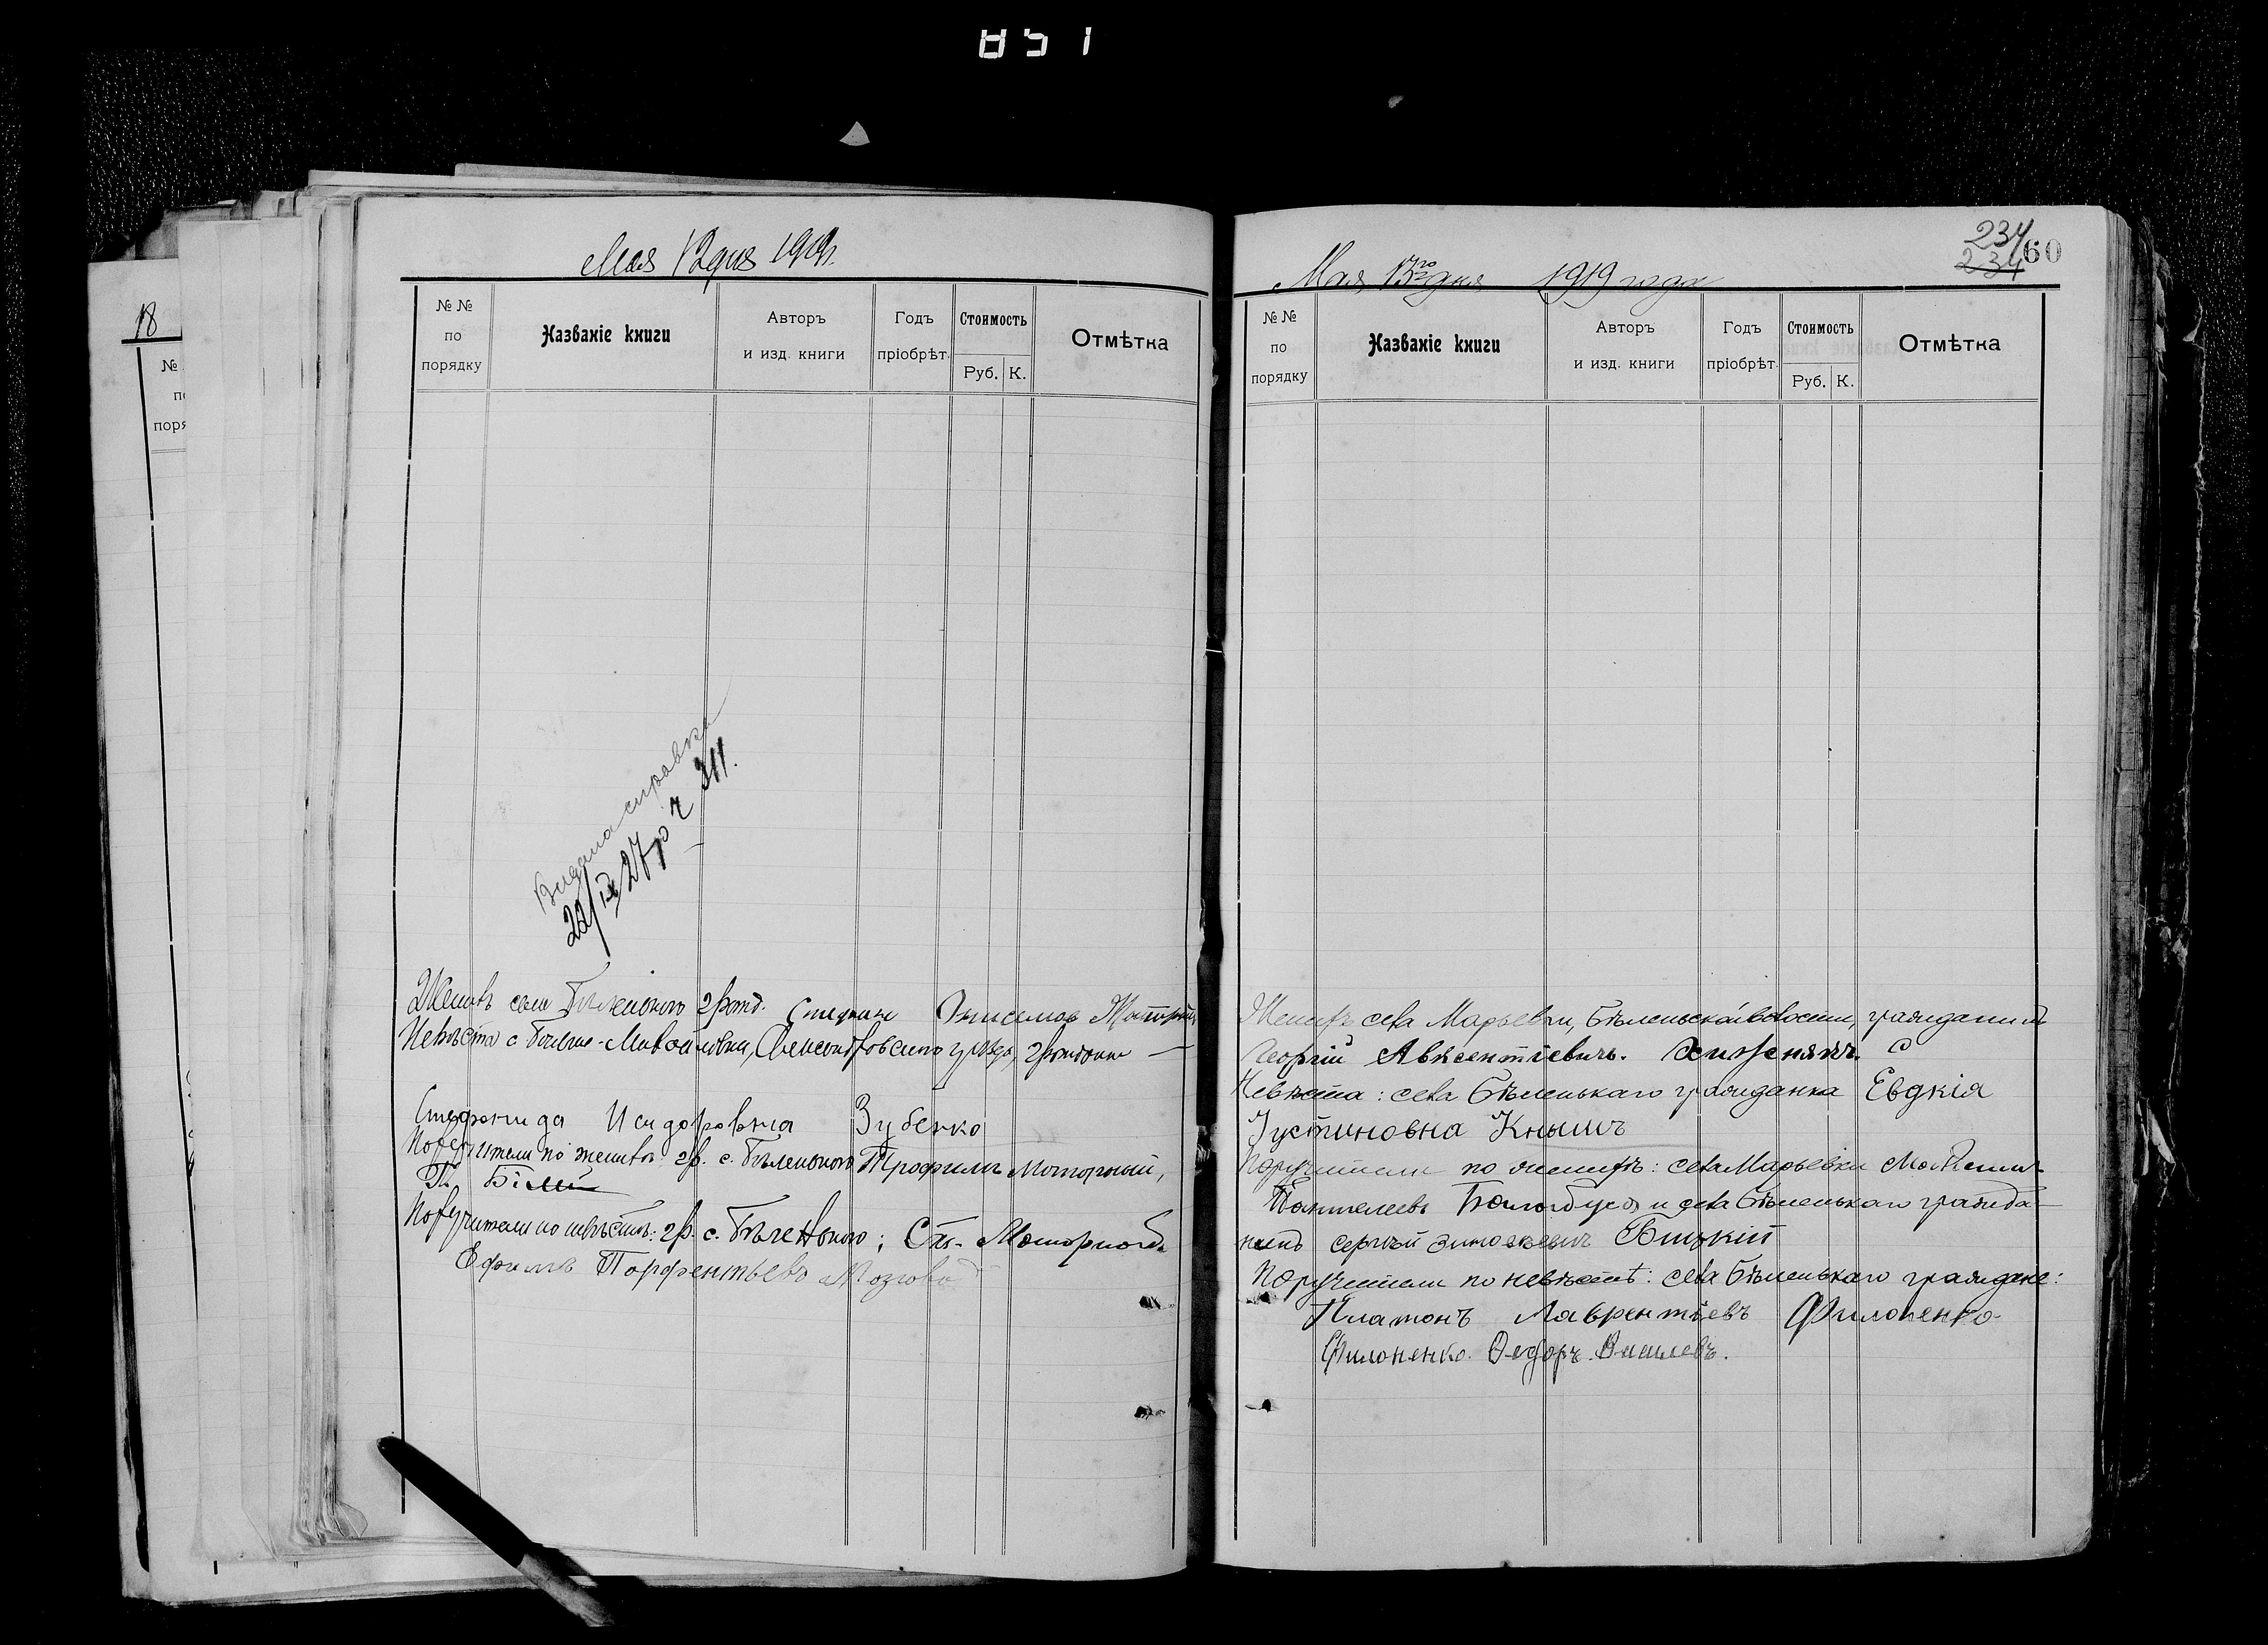 851
18
№
по
поря
Мая 12 дня 1919 г.
№ №
по
порядку
Названіе книги
Авторъ
и изд. книги
Годъ
пріобрѣт.
Стоимость
Руб. К.
Отмѣтка
Видана справка
22/IX 27 р ч 311.
Женихъ села Бѣленькаго гражд. Стефанъ Онисимов Моторный
Невѣста с Больше-Михайловки, Александровскаго уѣзда, гражданка —
Стефанида Исидоровна Зубенко
Поручители по жениху: гр. с. Бѣленькаго Трофимъ Моторный,
Поручители по невѣстѣ: гр. с. Бѣленького; Ст.
Ефимъ Парфентьевъ Мозговой
Мая 13го дня 1919 года
234
234 60
№ №
по
порядку
Названіе книги
Авторъ
и изд. книги
Годъ
пріобрѣт.
Стоимость
Руб. К.
Отмѣтка
Женихъ села Марьевки, Бѣленьской волости, гражданинъ
Георгій Авксентіевичъ. Хижнякъ.
Невѣста: села Бѣленькаго гражданка Евдкія
Іустиновна Кнышъ
Поручители по женихѣ: села Марьевки
Пантелеевъ и села Бѣленькаго гражда-
нинъ Сергѣй Зиновьевич
Поручители по невѣстѣ: села Бѣленькаго граждане:
Платонъ Лаврентіевъ Филоненко-
Филоненко Федоръ